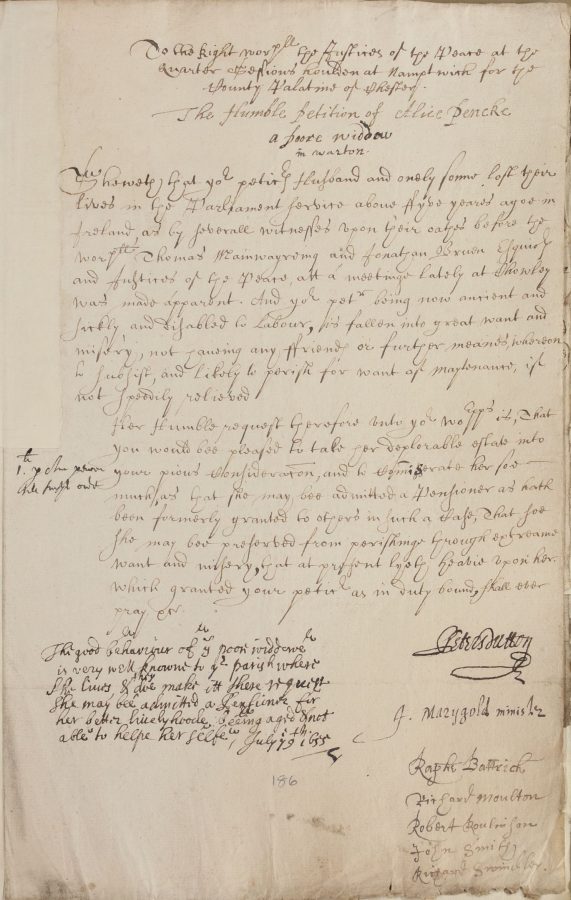 To the Right worpll the Justices of the Peace at the
Quarter Sessions houlden at Namptwich for the
County Palatine of Chester.
The Humble Petition of Alice Pencke
a poore widdow
in warton.
Sheweth that yor peticr Husband and onely sonne lost their
lives in the Parliament service above ffyve yeares agoe in
Ireland as by severall witnesses upon their oathes before the
worplls Thomas Mainwayreing and Jonathan Bruen Esquirs
and Justices of the Peace, att a meetinge lately at Rowley
was made apparent. And yor petr being now ancient and
sickly and disabled to Labour, is fallen into great want and
misery, not haveing any ffriends or further meanes whereon
to subsist, and likely to perish for want of maytenance, if
not speedily relieved
Her Humble request therefore unto yor worpps is, That
you would bee pleased to take her deplorable estate into
your pious Consideracon, and to Comiserate her soe
much, as that she may bee admitted a Pensioner as hath
been formerly granted to others in such a Case, That soe
she may bee preserved from perishinge through extreame
want and misery, that at present lyeth heavie upon her.
which granted your peticr as in duty bound, shall ever
pray &c.
The good behaviour of ys poor widdowe
is very well knowne to ye parish where
she lives & doe make itt there request
she may bee admitted a Pensiner for
her better livelyhoode beeing aged & not
able to helpe her selfe, July 9th 1655
Pet: Dutton
J. Marygold minister
Raphe Battrich
Richard Moulton
Robert
John Smith
Richard
186